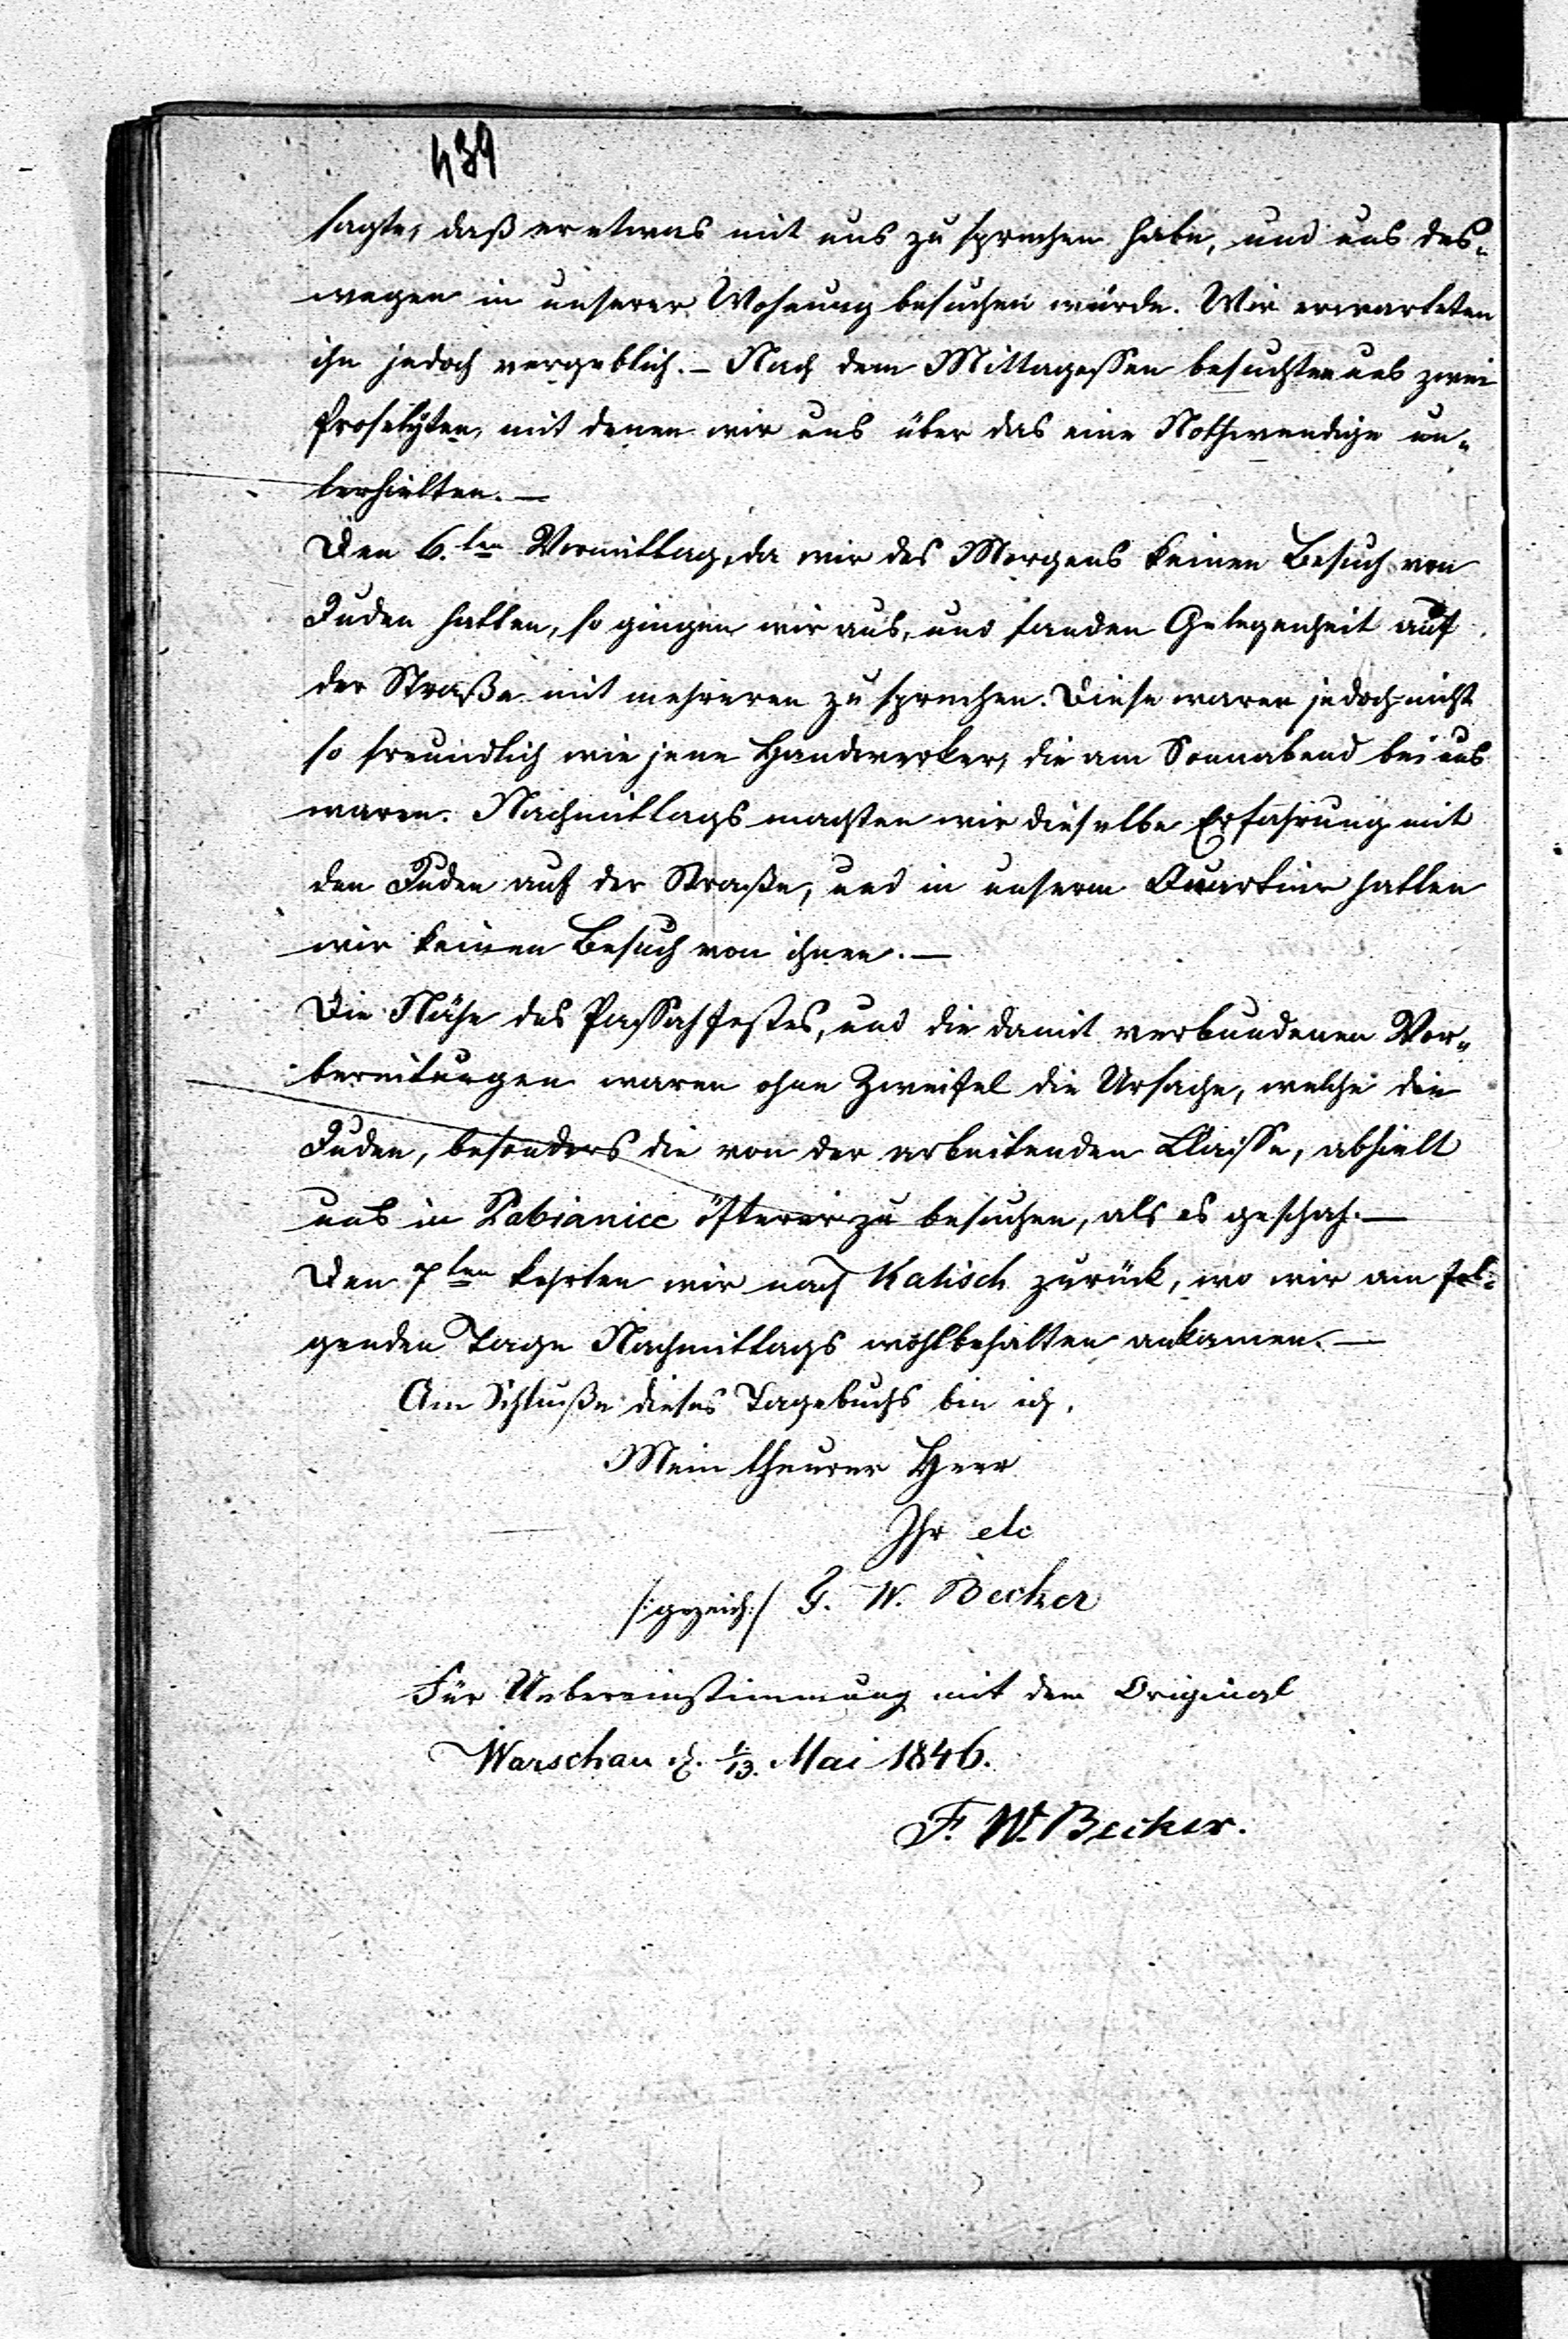 439
sagte, daß er etwas mit uns zu sprechen habe, und uns des„
wegen in unserer Wohnung besuchen würde. Wir erwarteten
ihn jedoch vergeblich. – Nach dem Mittagessen besuchten uns zwei
Proselyten, mit denen wir uns über das eine Nothwendige un„
terhielten. –
Den 6.ten Vormittag, da wir des Morgens keinen Besuch von
Juden hatten, so gingen wir aus, und fanden Gelegenheit auf
der Straße mit mehreren zu sprechen. Diese waren jedoch nicht
so freundlich wie jene Handwerker, die am Sonnabend bei uns
waren. Nachmittags machten wir dieselbe Erfahrung mit
den Juden auf der Straße, und in unserm Quartier hatten
wir keinen Besuch von ihnen. –
Die Nähe des Passahfestes, und die damit verbundenen Vor„
bereitungen waren ohne Zweifel die Ursache, welche die
Juden, besonders die von der arbeitenden Classe, abhielt
uns in Pabianice öfterer zu besuchen, als es geschah. –
Den 7ten kehrten wir nach Kalisch zurück, wo wir am fol„
genden Tage Nachmittags wohlbehalten ankamen. –
Am Schluße dieses Tagebuchs bin ich,
Mein theurer Herr
Ihr etc
/:gezeich:/ F. W. Becker
Für Uebereinstimmung mit dem Original
Warschau d. 1/13. Mai 1846.
F. W. Becker.